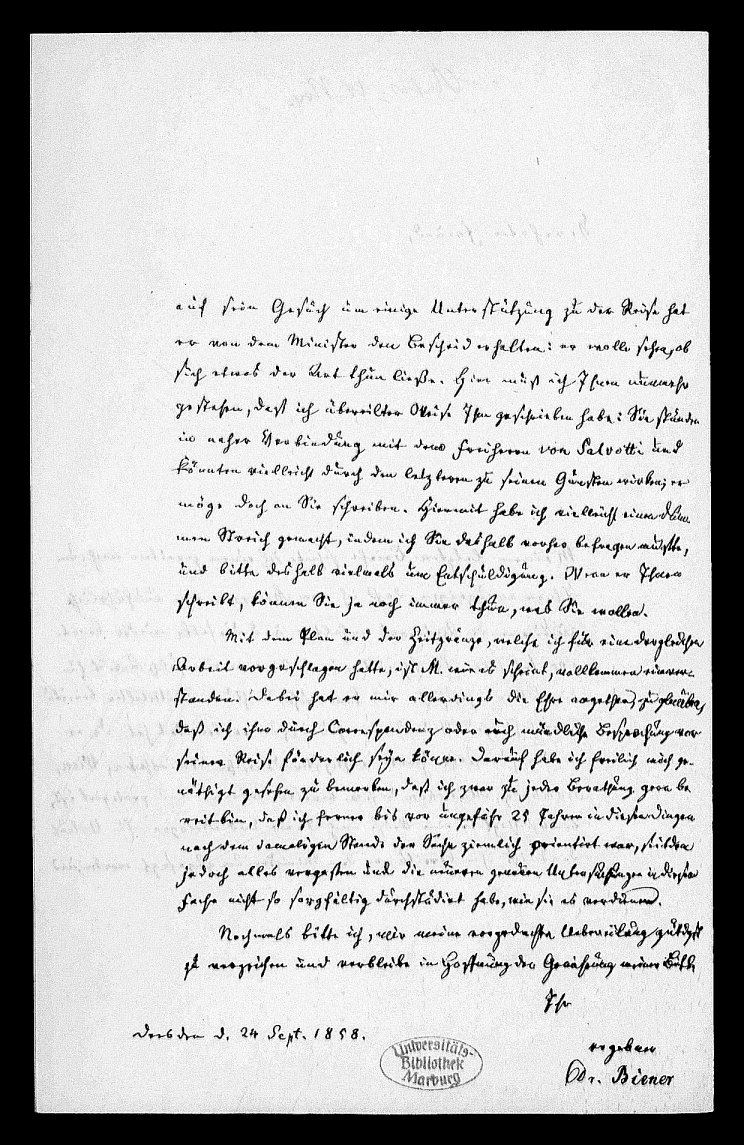 auf sein Gesuch um einige Unterstützung zu der Reise hat
er von dem Minister den Bescheid erhalten: er wolle sehen, ob
sich etwas der Art thun ließe. Hier muß ich Ihnen nunmehr
gestehen, daß ich übereilter Weise Ihm geschrieben habe: Sie stünden
in naher Verbindung mit dem Freiherrn von Salvotti und
könnten vielleicht durch den letzteren zu seinen Gunsten wirken; er
möge doch an Sie schreiben. Hiermit habe ich vielleicht einen dum-
men Streich gemacht, indem ich Sie deshalb vorher befragen mußte,
und bitte deshalb vielmals um Entschuldigung. Wenn er Ihnen
schreibt, können Sie ja noch immer thun, was Sie wollen.
Mit dem Plan und der Zeitgränze, welche ich für eine dergleichen
Arbeit vorgeschlagen hatte, ist M. wie es scheint, vollkommen einver-
standen. Dabei hat er mir allerdings die Ehre angethan, zu glauben,
daß ich ihm durch Correspondenz oder auch mündliche Besprechung vor
seiner Reise förderlich seyn könne. Darauf habe ich freilich mich ge-
nöthigt gesehen zu bemerken, daß ich zwar zu jeder Berathung gern be-
reit bin, daß ich ferner bis vor ungefähr 25 Jahren in diesen Dingen
nach dem damaligen Stande der Sache ziemlich orientirt war, seitdem
jedoch alles vergessen und die neueren Untersuchungen in diesem
Fache nicht so sorgfältig durchstudirt habe, wie sie es verdienen.
Nochmals bitte ich, mir meine vorgedachte Uebereilung gütigst
zu verzeihen und verbleibe in Hoffnung der Gewährung meiner Bitte
Ihr
Dresden d. 24 Sept. 1858.
ergebener
Dr. Biener
Universitäts-
Bibliothek
Marburg